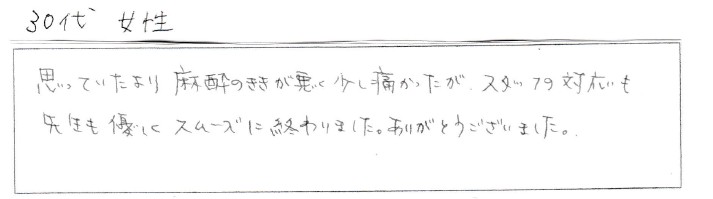 30代 女性
思っていたより麻酔のききが悪く少し痛かったが、スタッフの対応も
先生も優しくスムーズに終わりました。ありがとうございました。